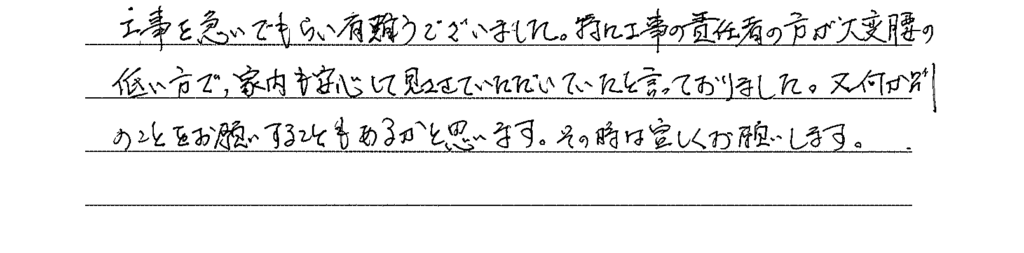 工事を急いでもらい有難うございました。特に工事の責任者の方が大変腰の
低い方で、家内も安心して見させていただいていたと言っておりました。又何か別
のことをお願いすることもあるかと思います。その時は宜しくお願いします。